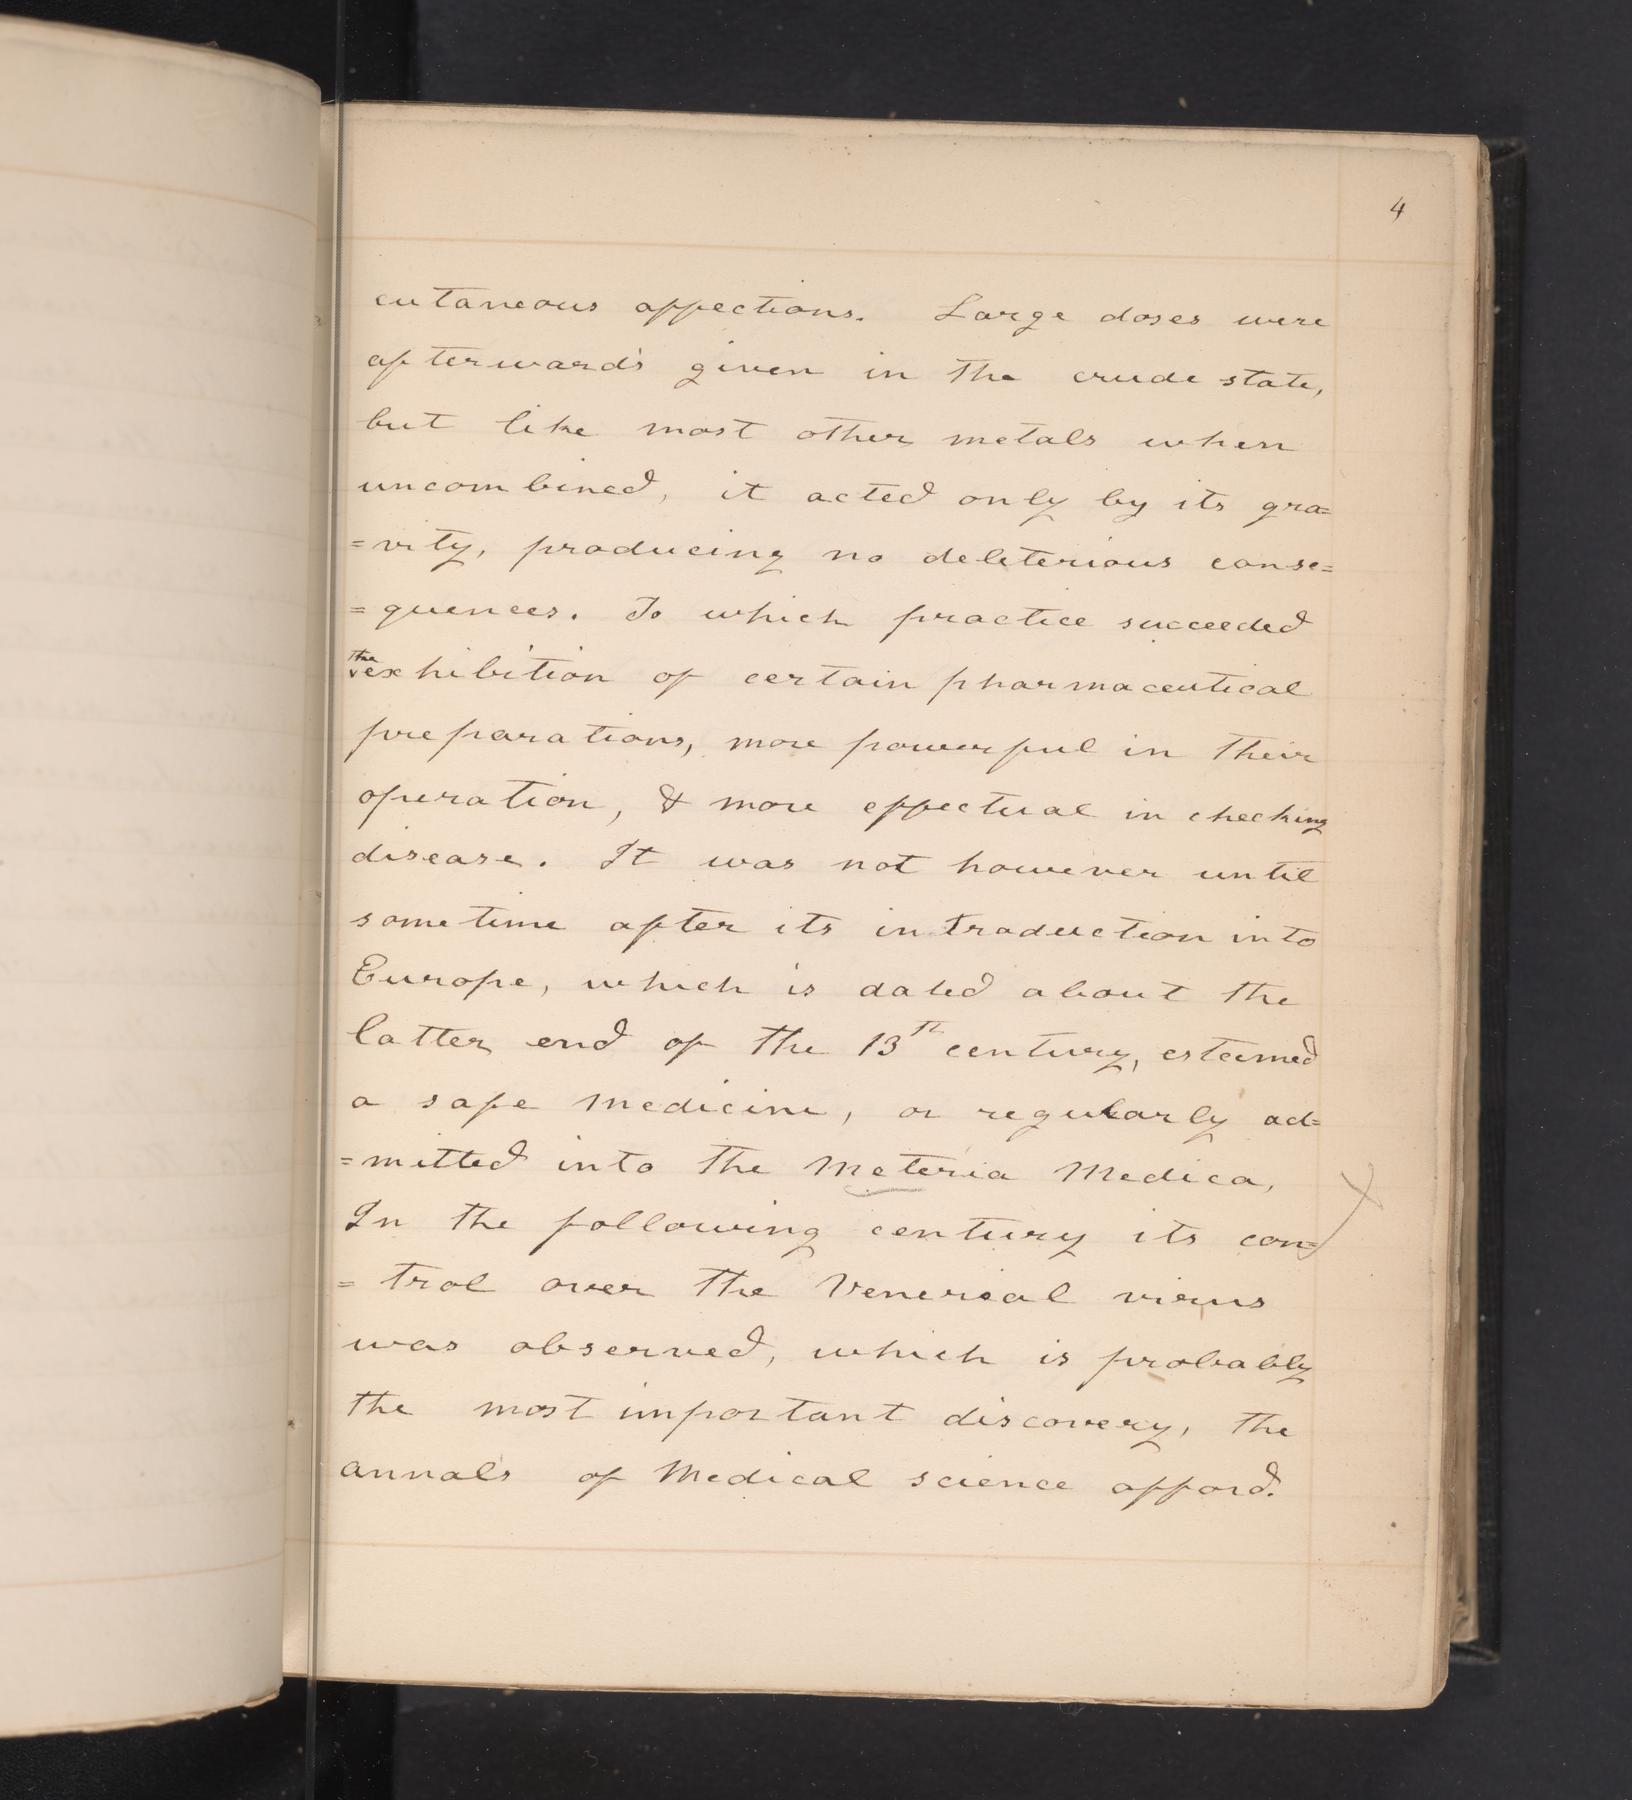 4
cutaneous affections. Large doses were
afterwards given in the crude state,
but like most other metals when
uncombined, it acted only by its gra=
=vity, producing no deleterious conse=
=quences. To which practice succeeded
the
exhibition of certain pharmaceutical
preparations, more powerful in their
operation, & more effectual in checking
disease. It was not however until
sometime after its introduction into
Europe, which is dated about the
latter end of the 13th century, esteemed
a safe medicine, or regularly ad=
=mitted into the Meteria Medica,
In the following century its con=
=trol over the Venereal virus
was observed, which is probably
the most important discovery, the
annals of Medical science afford.